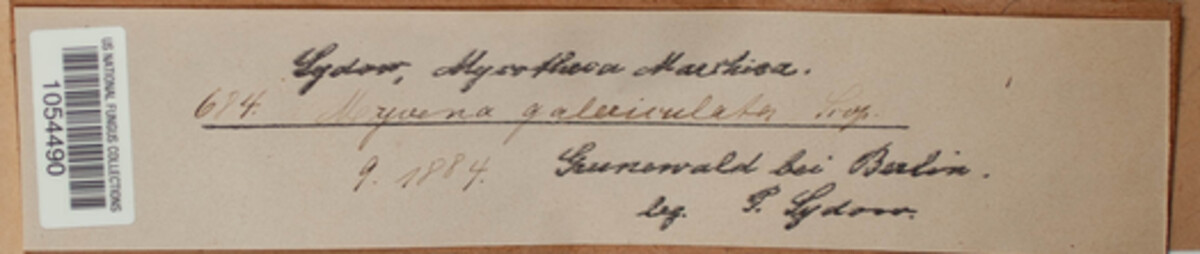 US NATIONAL FUNGUS COLLECTIONS
1054490
Sydow, Mycotheca Marchica.
684. Mycena galericulata Scop.
9. 1884. Grunewald bei Berlin.
leg. P. Sydow.